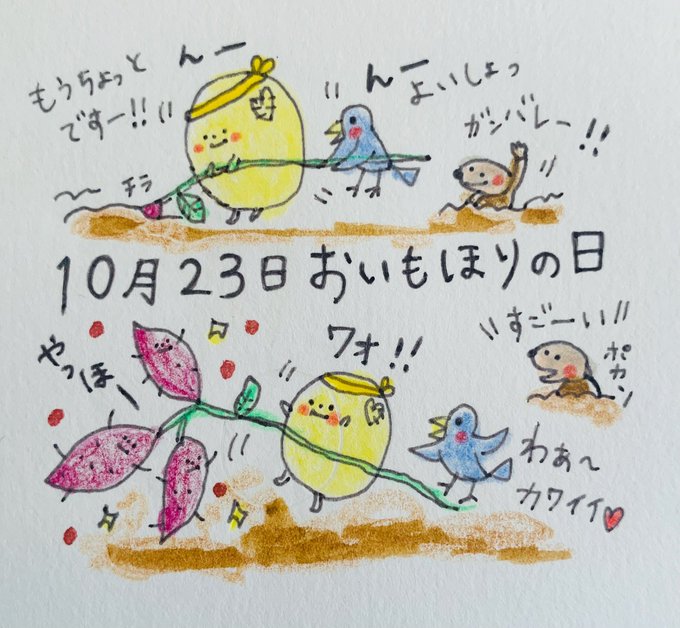 もうちょっと
ですー!!
んー
んー
よいしょっ
ガンバレー!!
チラ
10月23日おいもほりの日
やっほー
ワオ!!
すごーい!!
ポカン
わぁ〜
カワイイ